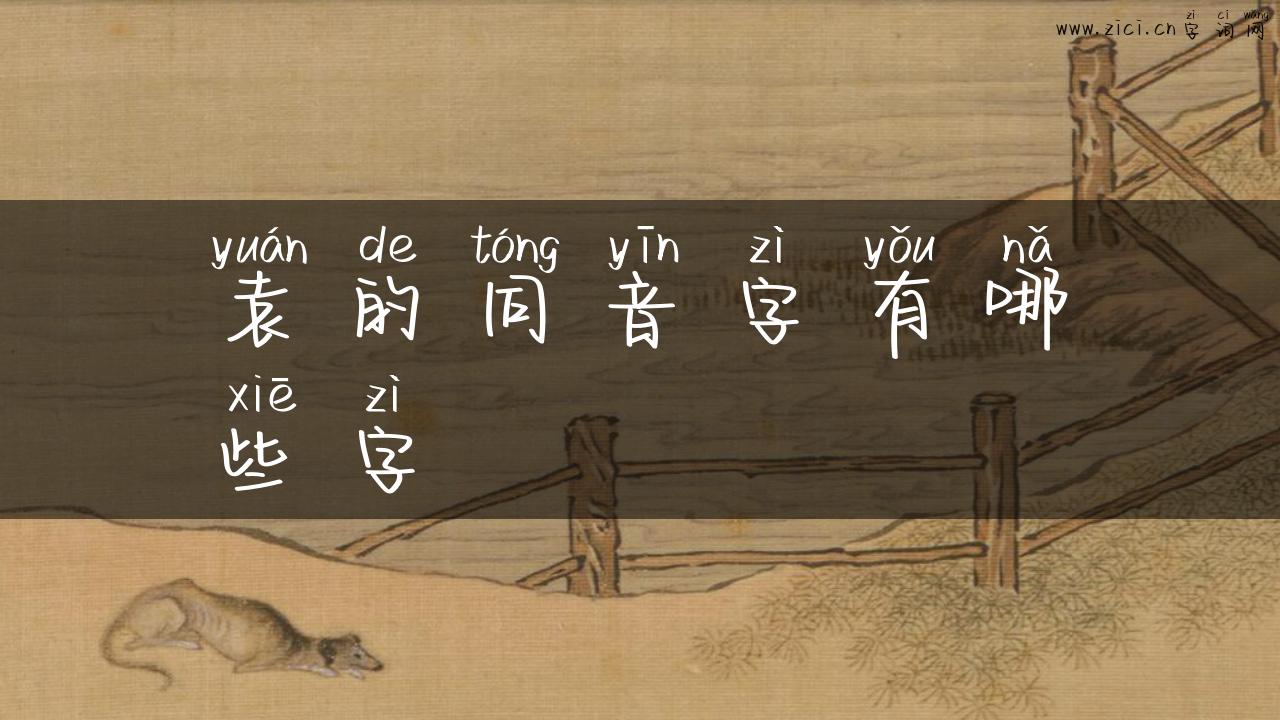 zì cí wǎng
www.zici.cn 字词网
yuán de tóng yīn zì yǒu nǎ
袁的同音字有哪
xiē zì
些字